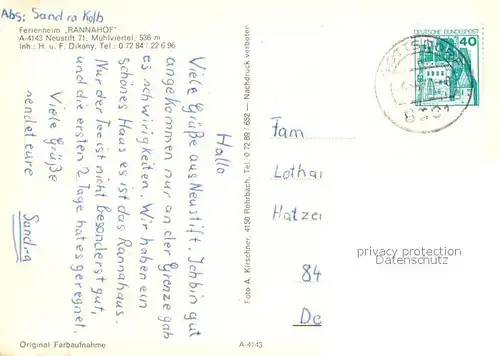 Abs: Sandra Kolb
Ferienheim „RANNAHOF"
A-4143 Neustift 71, Mühlviertel, 536 m
Inh.: H. u. F. Dikany, Tel. 0 72 84 / 22 6 96
Hallo
Viele Grüße aus Neustift. Ich bin gut
angekommen nur an der Grenze gab
es schwirigkeiten. Wir haben ein
schönes Haus es ist das Rannahaus.
Nur der Tee ist nicht besonderst gut,
und die ersten 2 Tage hat es geregnet.
Viele Grüße
sendet eure
Sandra
Foto A. Kirschner, 4150 Rohrbach, Tel. 0 72 89 / 652 — Nachdruck verboten
DEUTSCHE BUNDESPOST
40
Fam
Lothar
Hatzer
84
De
privacy protection
Datenschutz
Original Farbaufnahme
A-4143